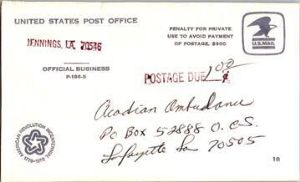 UNITED STATES POST OFFICE
JENNINGS, LA 70546
OFFICIAL BUSINESS
P-186-5
PENALTY FOR PRIVATE
USE TO AVOID PAYMENT
OF POSTAGE, $300
U.S.MAIL
POSTAGE DUE
Acadian Ambulance
PO Box 52888 O.C.S.
Lafayette La 70505
AMERICAN REVOLUTION BICENTENNIAL
1776-1976
10